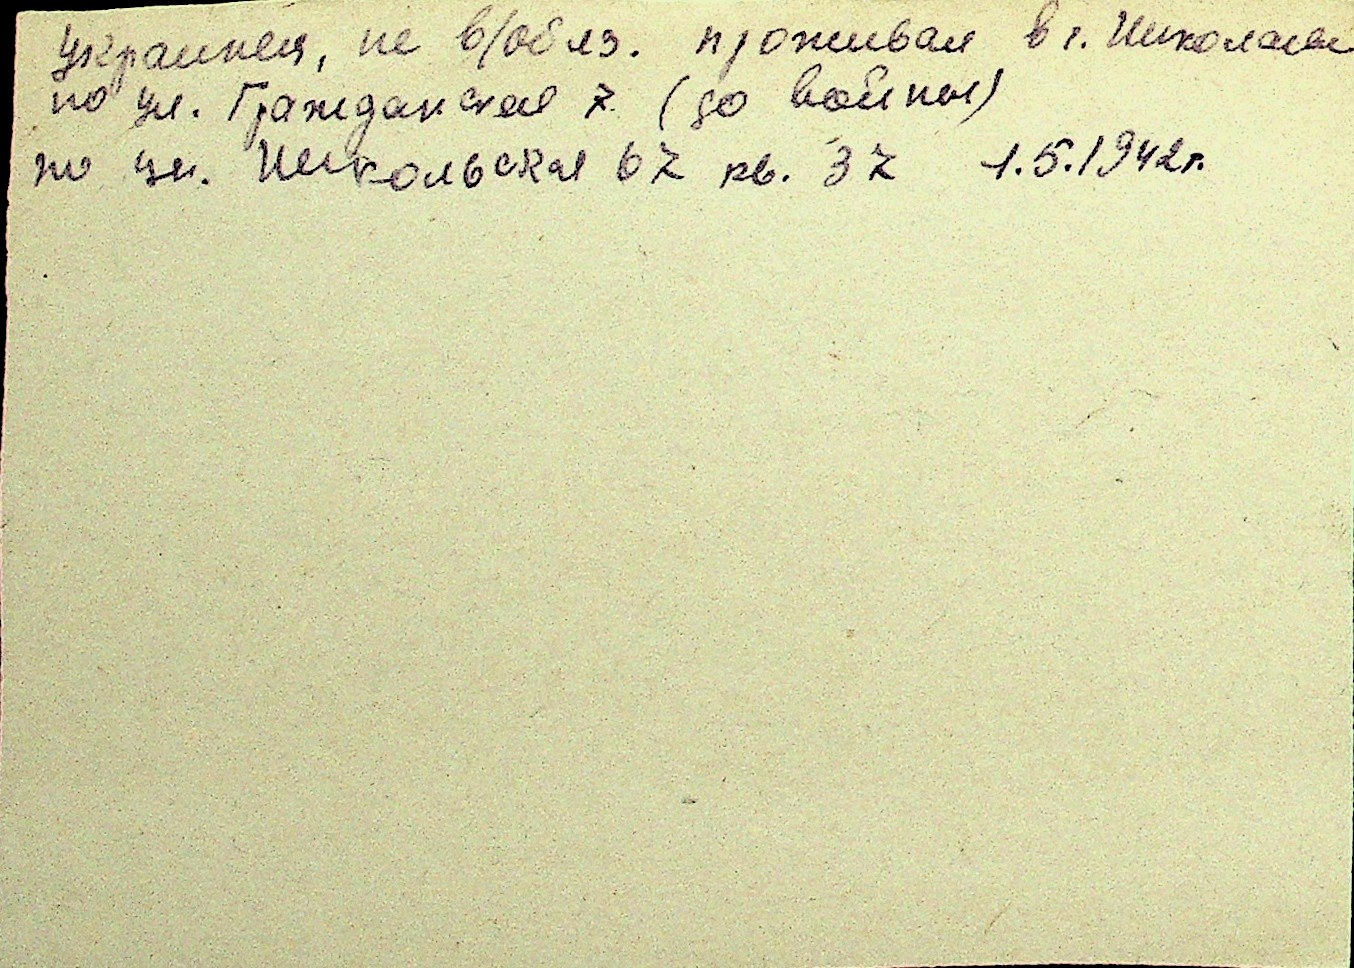 украинец, не в/обяз. проживал в г. Николаеве
по ул. Гражданская 7 (до войны)
по ул. Никольская 67 кв. 37 1.5.1942г.